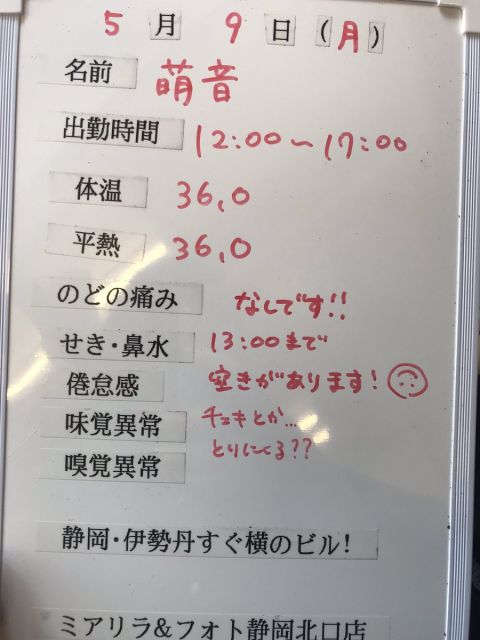 5月9日(月)
名前 萌音
出勤時間 12:00〜17:00
体温 36,0
平熱 36,0
のどの痛み なしです!!
せき・鼻水 13:00まで
倦怠感 空きがあります!
味覚異常 チェキとか...
嗅覚異常 とりにくる??
静岡・伊勢丹すぐ横のビル!
ミアリラ&フォト静岡北口店